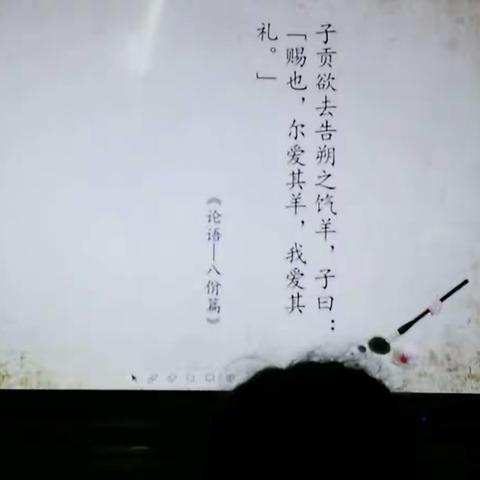 子贡欲去告朔之饩羊，子曰：
「赐也，尔爱其羊，我爱其
礼。」
《论语—八佾篇》